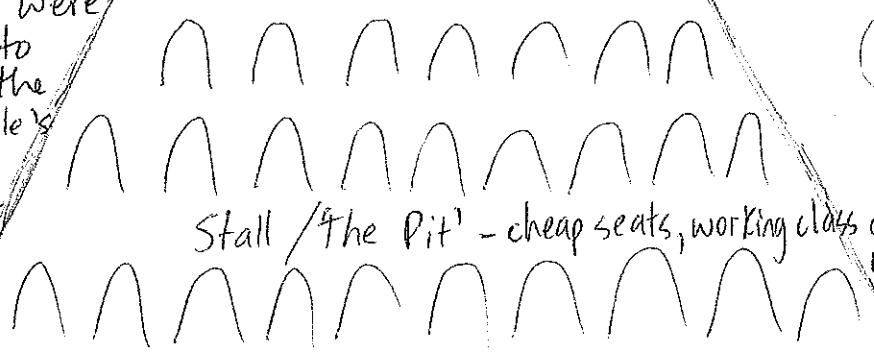 were
to
the
le's
Stall / 'The Pit' - cheap seats, working class